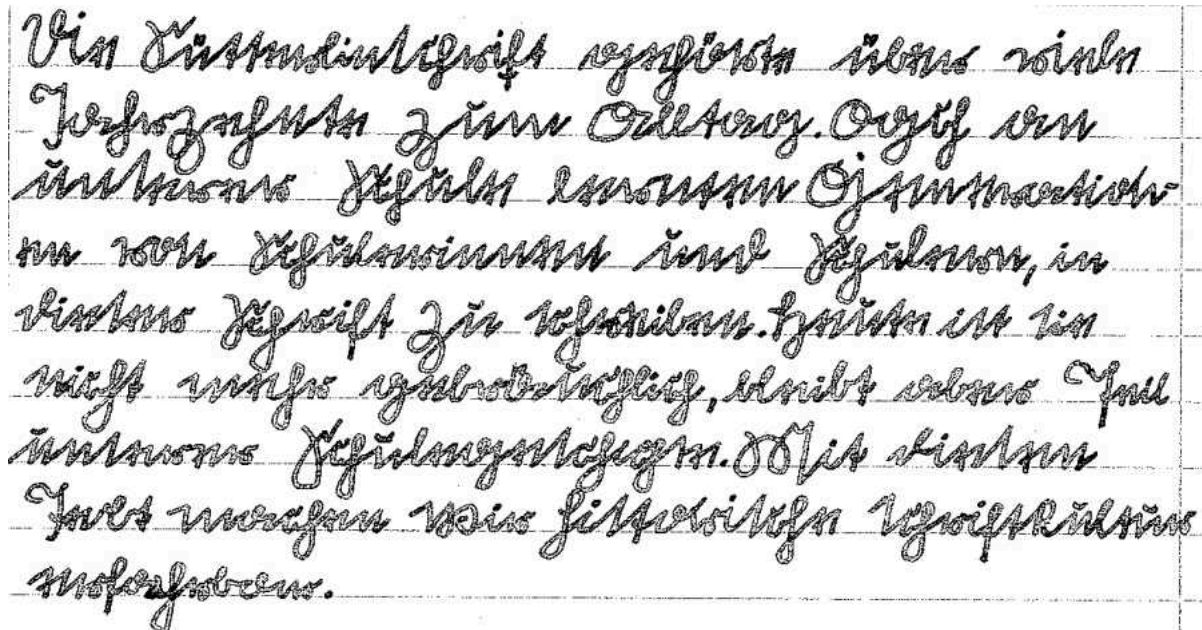 Die Sütterlinschrift gehörte über viele
Jahrzehnte zum Alltag. Auch an
unserer Schule lernten Generatio-
en von Schülerinnen und Schülern, in
dieser Schrift zu schreiben. Heute ist sie
nicht mehr gebräuchlich, bleibt aber Teil
unserer Schulgeschichte. Mit diesem
Text machen wir historische Schriftkultur
erfahrbar.